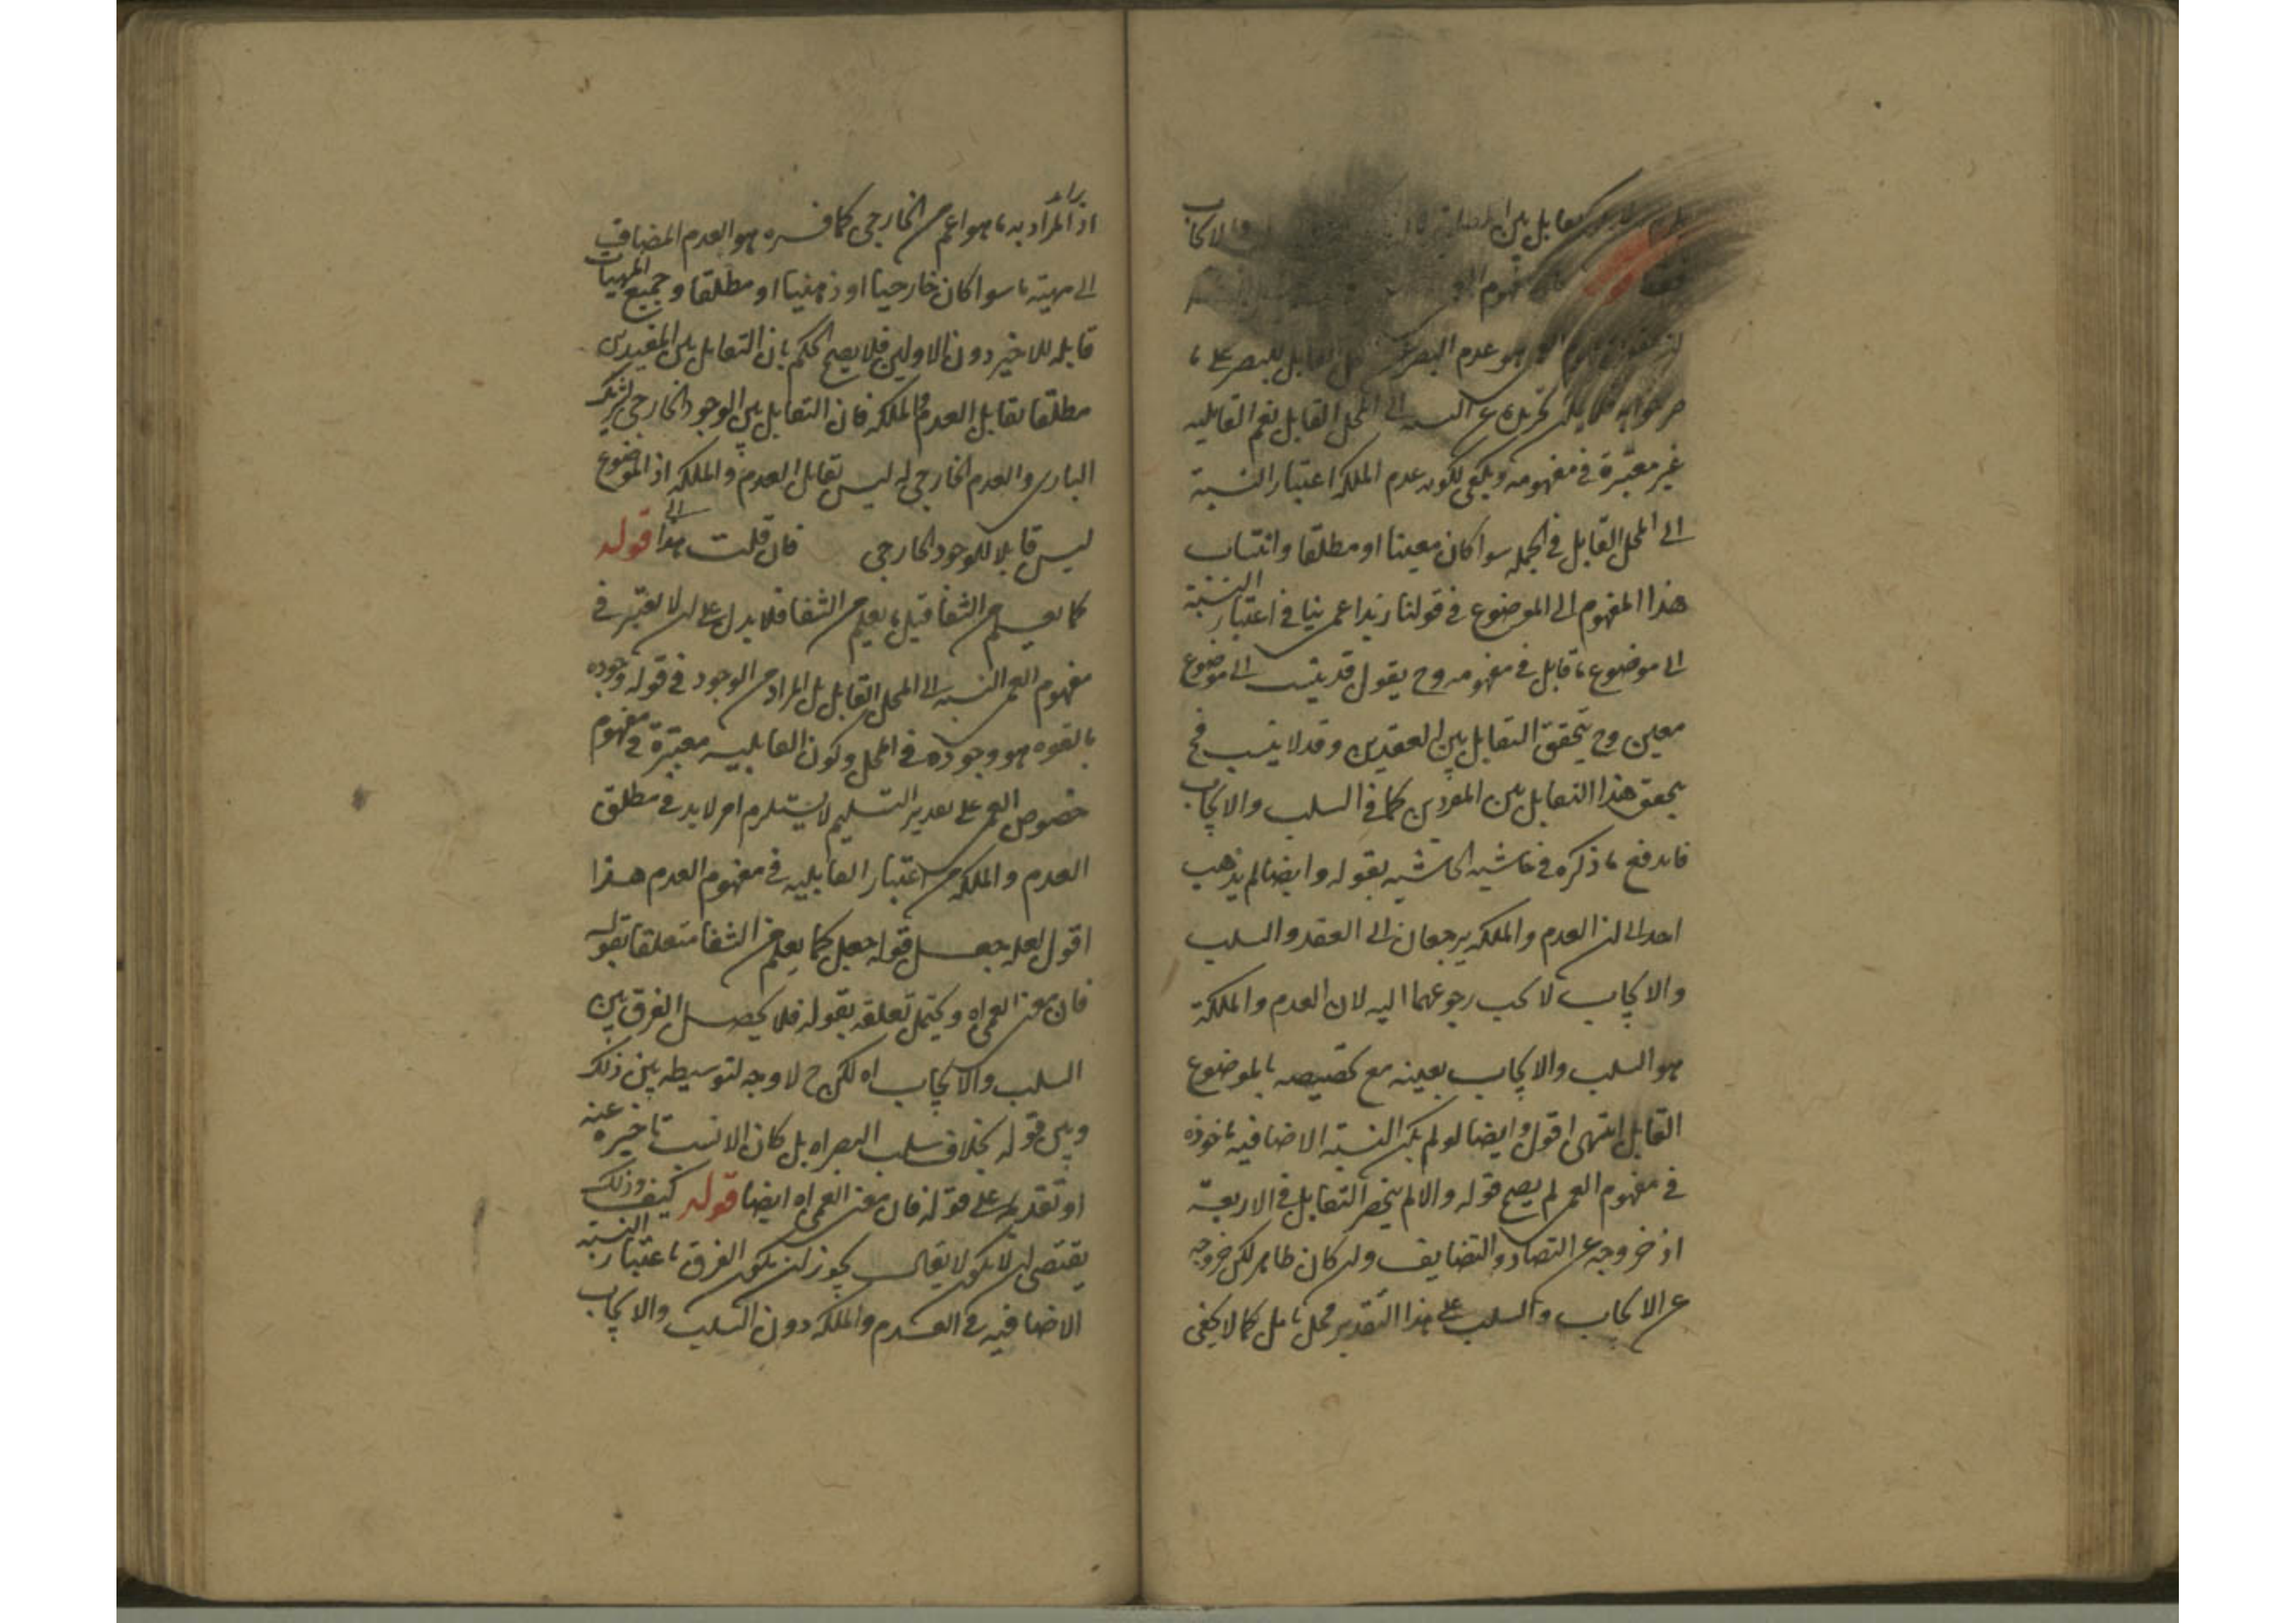 تقابل بين والايجاب
مفهوم
هو عدم البصر القابل للبصر على ما
المحل القابل نعم القابلية
غير معتبرة في مفهومه ويكفي لكونه عدم الملكة اعتبار النسبة
الى المحل القابل في الجملة سواء كان معينا او مطلقا وانتساب
هذا المفهوم الى الموضوع في قولنا زيد اعمى ينافي اعتبار النسبة
الى موضوع ما قابل في مفهومه وح يقول قد ينسب الى موضوع
معين وح يتحقق التقابل بين العقدين وقد لا ينسب فح
يتحقق هذا التقابل بين المفردين كما في السلب والايجاب
فاندفع ما ذكره في حاشية الحاشية بقوله وايضا لم يذهب
احد الى ان العدم والملكة يرجعان الى العقد والسلب
والايجاب لا يجب رجوعهما اليه لان العدم والملكة
هو السلب والايجاب بعينه مع تخصيصه بالموضوع
القابل انتهى اقول وايضا لو لم يكن النسبة الاضافية ماخوذه
في مفهوم العمى لم يصح قوله والا لم ينحصر التقابل في الاربعة
اذ خروجه عن التضاد والتضايف وان كان ظاهر لكن خروجه
عن الايجاب والسلب على هذا التقدير محل تامل كما لا يخفى
اذ المراد به ما هو اعم من الخارجي كما فسره هو العدم المضاف
الى مهية ما سواء كان خارجيا او ذهنيا او مطلقا وجميع المهيات
قابلة للاخير دون الاولين فلا يصح الحكم بان التقابل بين المقيدين
مطلقا تقابل العدم والملكة فان التقابل بين الوجود الخارجي لشريك
البارى والعدم الخارجي له ليس تقابل العدم والملكة اذ الموضوع
ليس قابلا للوجود الخارجي فان قلت هذا الى قوله
كما يعلم من الشفا قيل ما يعلم من الشفا فلا يدل على ان لا يعتبر في
مفهوم العمى النسبة الى المحل القابل بل المراد من الوجود في قوله وجوده
بالقوه هو وجوده في المحل وكون القابلية معتبرة في مفهوم
خصوص العمى على تقدير التسليم لا يستلزم امر لا بد في مطلق
العدم والملكة من اعتبار القابلية في مفهوم العدم هذا
اقول لعله جعل قوله كما يعلم من الشفا متعلقا بقوله
فان معنى العمى اه ويحتمل تعلقه بقوله فلا يحصل الفرق بين
السلب والايجاب اه لكن ح لا وجه لتوسيطه بين ذلك
وبين قوله بخلاف سلب البصر اه بل كان الانسب تاخيره عنه
او تقديمه على قوله فان معنى العمى اه ايضا قوله كيف وذلك
يقتضي ان لا يكون لا يقال يجوز ان يكون الفرق باعتبار النسبة
الاضافية في العدم والملكة دون السلب والايجاب